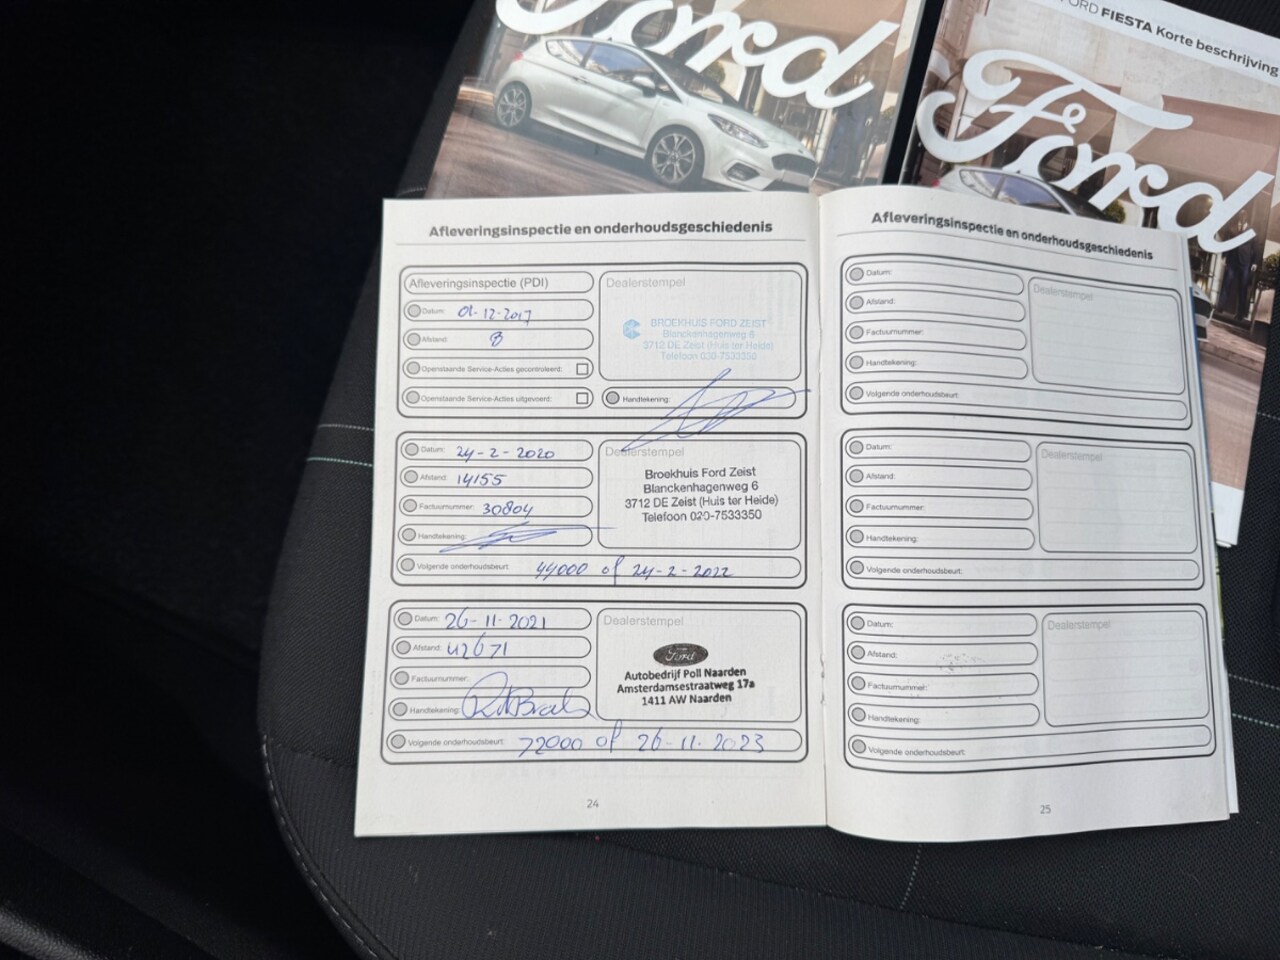 Ford
FORD FIESTA Korte beschrijving
Ford
Afleveringsinspectie en onderhoudsgeschiedenis
Afleveringsinspectie (PDI)
Datum: 01-12-2017
Afstand: 8
Openstaande Service-Acties gecontroleerd:
Openstaande Service-Acties uitgevoerd:
Dealerstempel
BROEKHUIS FORD ZEIST
Blanckenhagenweg 6
3712 DE Zeist (Huis ter Heide)
Telefoon 030-7533350
Handtekening:
Datum: 24-2-2020
Afstand: 14155
Factuurnummer: 30804
Handtekening:
Dealerstempel
Broekhuis Ford Zeist
Blanckenhagenweg 6
3712 DE Zeist (Huis ter Heide)
Telefoon 030-7533350
Volgende onderhoudsbeurt: 44000 of 24-2-2022
Datum: 26-11-2021
Afstand: 42671
Factuurnummer:
Handtekening:
Dealerstempel
Ford
Autobedrijf Poll Naarden
Amsterdamsestraatweg 17a
1411 AW Naarden
Volgende onderhoudsbeurt: 72000 of 26-11-2023
24
Afleveringsinspectie en onderhoudsgeschiedenis
Datum:
Afstand:
Factuurnummer:
Handtekening:
Dealerstempel
Volgende onderhoudsbeurt:
Datum:
Afstand:
Factuurnummer:
Handtekening:
Dealerstempel
Volgende onderhoudsbeurt:
Datum:
Afstand:
Factuurnummer:
Handtekening:
Dealerstempel
Volgende onderhoudsbeurt:
25